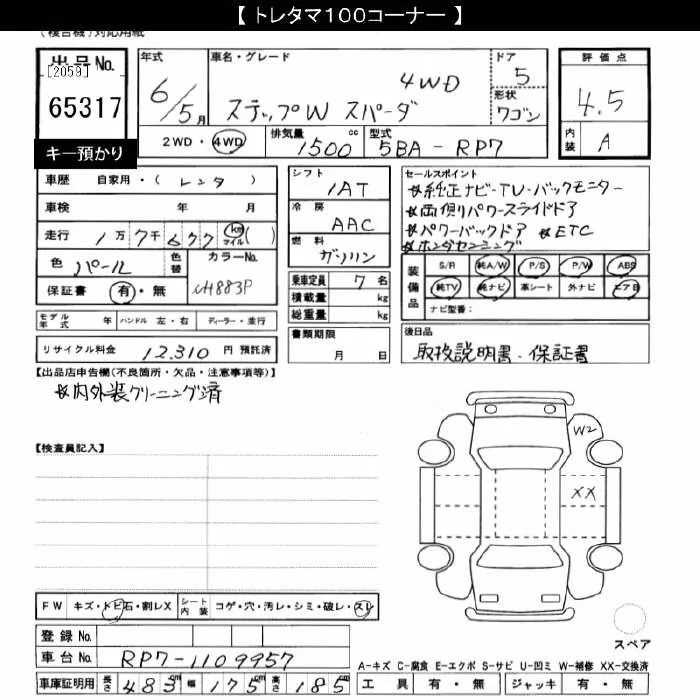 【 トレタマ100コーナー 】
(複合機)対応用紙
出品No.
[2059]
65317
キー預かり
年式 6/5月
車名・グレード
4WD
ステップW スパーダ
ドア 5
形状 ワゴン
評価点
4.5
内装 A
2WD・4WD 排気量 1500 cc 型式 5BA-RP7
車歴 自家用・( レンタ )
車検 年 月
走行 1万7千677 km マイル ( )
色 パール 色替 カラーNo. NH883P
保証書 有・無
モデル年式 年 ハンドル 左・右 ディーラー・並行
リサイクル料金 12,310 円 預託済
シフト
IAT
冷房
AAC
燃料
ガソリン
乗車定員 7 名
積載量 kg
総重量 kg
書類期限
月 日
セールスポイント
※純正ナビ-TV-バックモニター
※両側パワースライドドア
※パワーバックドア ※ETC
※ホンダセンシング
装備品
S/R 純A/W P/S P/W ABS
純TV 純ナビ 革シート 外ナビ エアB
ナビ型番:
後日品
取扱説明書・保証書
【出品店申告欄(不良箇所・欠品・注意事項等)】
※内外装クリーニング済
【検査員記入】
W2
XX
スペア
FW キズ・トビ石・割レX シート内装 コゲ・穴・汚レ・シミ・破レ・スレ
登録No.
車台No. RP7-1109957
車庫証明用 長さ 483 幅 175 高さ 185
A-キズ C-腐食 E-エクボ S-サビ U-凹ミ W-補修 XX-交換済
工具 有・無 ジャッキ 有・無